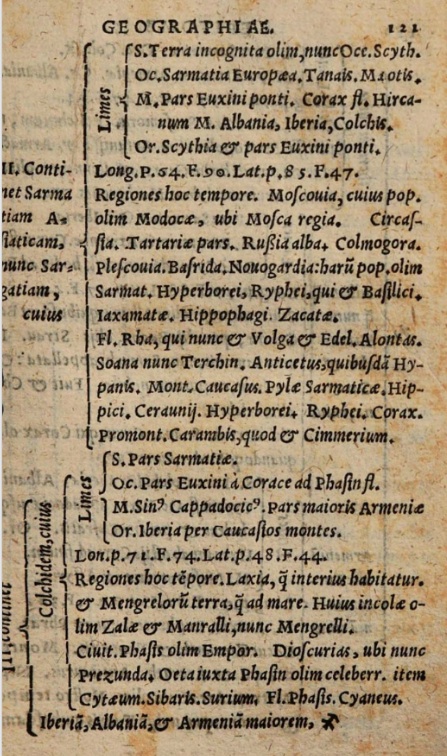 GEOGRAPHIAE. 121
S. Terra incognita olim, nunc Occ. Scyth.
Oc. Sarmatia Europæa. Tanais. Mæotis.
Limes
M. Pars Euxini ponti. Corax fl. Hirca-
num M. Albania, Iberia, Colchis.
Or. Scythia & pars Euxini ponti.
II. Conti- Long. P. 64. F. 90. Lat. p. 85. F. 47.
net Sarma Regiones hoc tempore. Moscouia, cuius pop.
tiam A- olim Modocæ, ubi Mosca regia. Circas-
siaticam, sia. Tartariæ pars. Rußia alba. Colmogora.
nunc Sar- Plescouia. Basrida. Nouogardia: harũ pop. olim
gatiam, Sarmat. Hyperborei, Ryphei, qui & Basilici.
cuius Iaxamatæ. Hippophagi. Zacatæ.
Fl. Rha, qui nunc & Volga & Edel. Alontas.
Soana nunc Terchin. Anticetus, quibusdã Hy-
panis. Mont. Caucasus. Pylæ Sarmaticæ. Hip-
pici. Ceraunij. Hyperborei. Ryphei. Corax.
Promont. Carambis, quod & Cimmerium.
S. Pars Sarmatiæ.
Oc. Pars Euxini à Corace ad Phasin fl.
Limes
M. Sinꝰ Cappadocicꝰ. Pars maioris Armeniæ
Or. Iberia per Caucasios montes.
III. continet
Colchidem, cuius
Lon. p. 71. F. 74. Lat. p. 48. F. 44.
Regiones hoc tẽpore. Laxia, q̃ interius habitatur.
& Mengrelorũ terra, q̃ ad mare. Huius incolæ o-
lim Zalæ & Manralli, nunc Mengrelli.
Ciuit. Phasis olim Empor. Dioscurias, ubi nunc
Prezunda. Oeta iuxta Phasin olim celeberr. item
Cytæum. Sibaris. Surium. Fl. Phasis. Cyaneus.
Iberiã, Albaniã, & Armeniã maiorem,